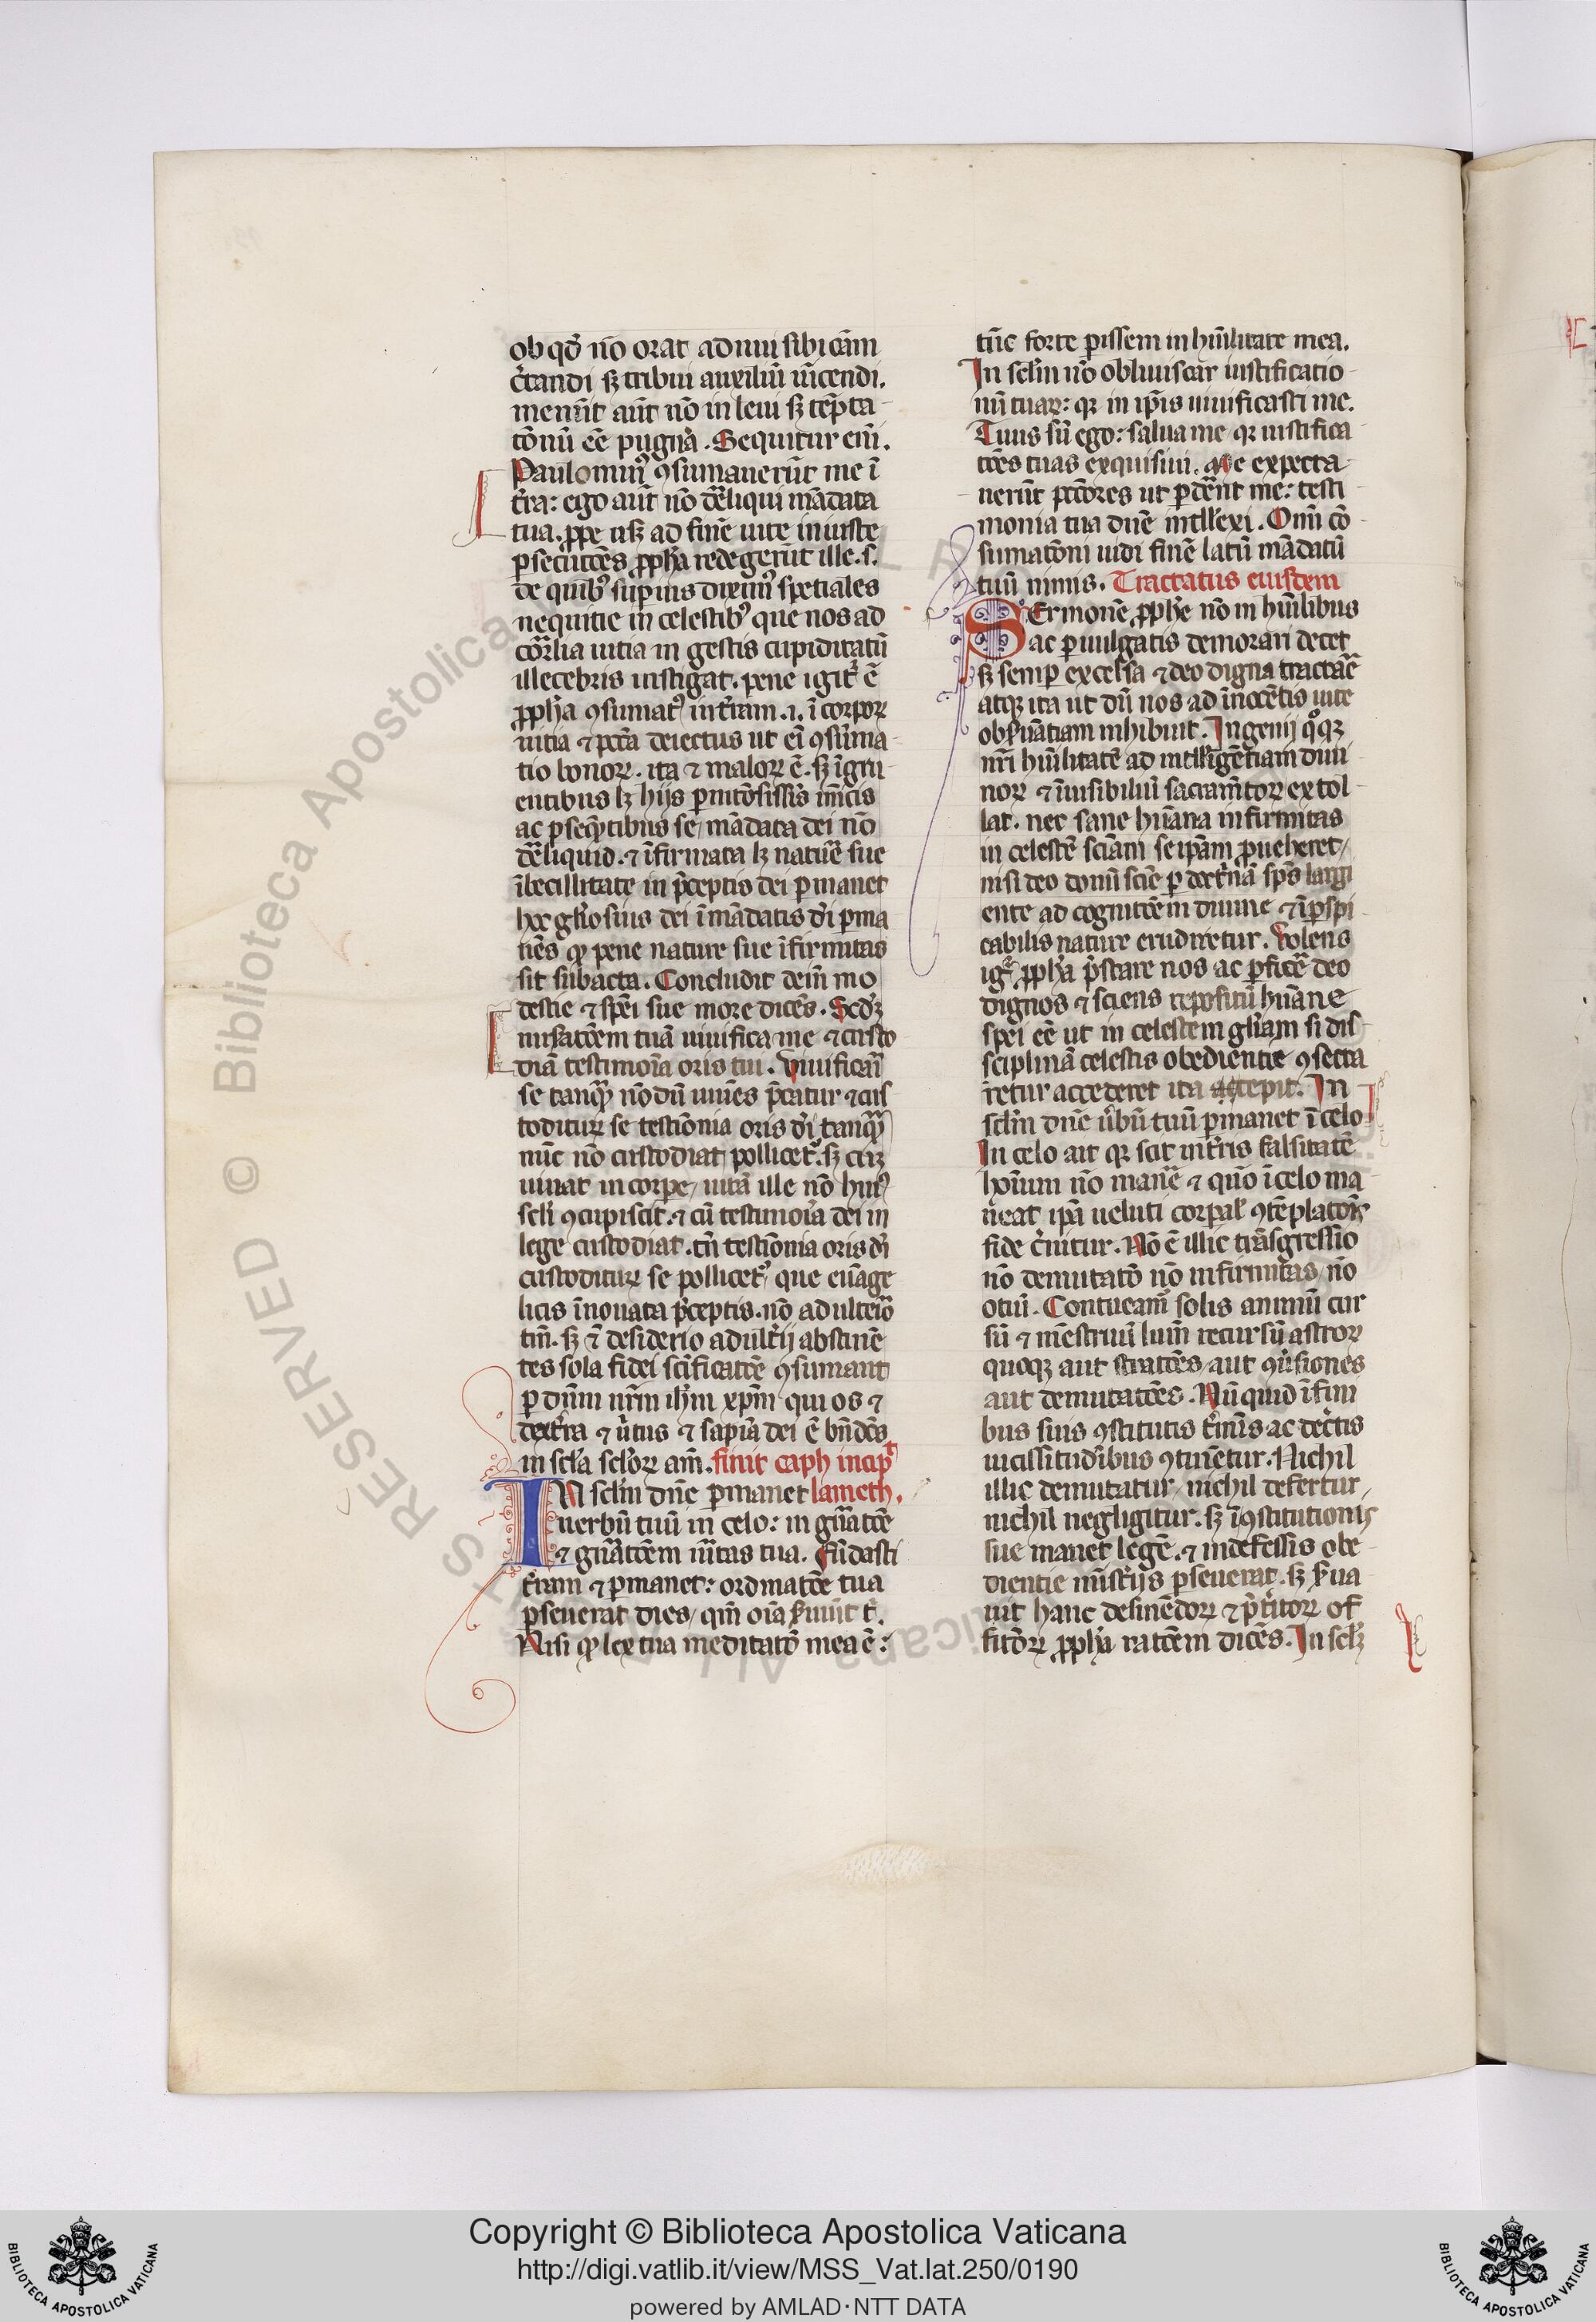 ob qd̄ nō orat adimi sibi cām
c̄tandi sꝫ tribui auxiliū uīcendi.
menīt aūt nō in leui sꝫ tēpta-
tōnū eē pugnā. Sequitur eni̅.
Paulominꝰ ꝯsumauerūt me ī
tr̄a: ego aūt nō dr̄eliqui mādata
tua. ꝓpe usꝫ ad finē uite iniuste
ꝑsecutōes ꝓpħā redegerūt ille .s.
de quibꝰ suꝑius diximꝰ spetiales
nequitie in celestibꝰ que nos ad
cor̄lia uitia in gestis cupiditatū
illecebris instigat. pene igit̄ ē
ꝓpħa ꝯsumatꝰ in tr̄am .i. ī corpoꝝ
uitia ⁊ pc̄cā deiectus ut ei̅ ꝯsūma-
tio bonoꝝ. ita ⁊ maloꝝ ē. sꝫ īgru-
entibus lꝫ hijs ꝑnitōsissīs inīcis
ac ꝑseq̄ntibus se, mādata dei nō
dr̄eliquid. ⁊ īfirmata lꝫ natur̄e sue
ībecillitate in p̄ceptis dei ꝑmanet
hoc gl̄iosius dei ī mādatis dn̄i ꝑma
nēs ꝙ pene nature sue īfirmitas
sit subacta. Concludit dein̄ mo
destie ⁊ spei sue more dicēs. Scd̄ꝫ
misatōem tuā uiuifica me ⁊ custo
diā testimoīa oris tui. Viuificari
se tanqꝫ nōdū uiuēs p̄catur ⁊ cus
toditurꝝ se testīonia oris dn̄i tanqꝫ
nūc nō custodiat pollicet̄ꝰ. sꝫ cūꝫ
uiuat in corpe, uitā ille nō huiꝰ
scl̄i ꝯcupiscit. ⁊ cū testimoīa dei in
lege custodiat. tn̄ testīonia oris dn̄i
custoditurꝝ se pollicet̄ꝰ que euāge
licis īnouata p̄ceptis. nō adulteīo
tm̄. sꝫ ⁊ desiderio adult̄ij abstinē
tes sola fidei sc̄ificatōe ꝯsumant
ꝑ dn̄m nr̄m ih̄m xp̄m qui os ⁊
dext̄ra ⁊ ūtus ⁊ sapīa dei ē bn̄dc̄s
in scl̄a scl̄oꝝ am̄. finit caph incip̄t
IN scl̄m dn̄e ꝑmanet lameth.
uerbū tuū in celo: in gn̄atōe
⁊ gn̄atōem uītas tua. Fūdasti
tr̄am ⁊ ꝑmanet: ordinatōe tua
ꝑseuerat dies, qm̄ oīa ẜuiūt t̄.
Nisi ꝙ lex tua meditatō mea ē:
tūc forte ꝑissem in hūilitate mea.
In scl̄m nō obliuiscar iustificatio-
nū tuaꝝ: qꝛ in ip̄is uiuificasti me.
Tuus sū ego: salua me qꝛ iustifica-
tōes tuas exquisiui. Me expecta-
nerūt pcc̄ores ut ꝑdēnt me: testi-
monia tua dn̄e intll̄exi. Omī cō-
sumatōni uidi finē latū mādatū
tuū nimis. Tractatus eiusdem
SErmonē ꝓpħe nō in hūilibus
ac ꝑuulgatis demorari decet
sꝫ semꝑ excelsa ⁊ deo digna tractar̄e
atqꝫ ita ut dū nos ad īnocētis uite
obẜuātiam inhibuit. Ingenij qͦqꝫ
nr̄i hūilitatē ad intll̄igētiam diui
noꝝ ⁊ īuisibiliū sacramtoꝝ extol-
lat. nec sane hūana infirmitas
in celestē sciām seip̄am ꝓueheret,
nisi deo donū scīe ꝑ doct̄nā sp̄s largi
ente ad cognitōem diuine ⁊ īꝑspi-
cabilis nature erudiretur. Volens
igr̄ ꝓpħa p̄stare nos ac ꝑficer̄e deo
dignos ⁊ sciens repositū hūane
spei eē ut in celestem gl̄iam si dis-
sciplinā celestis obedientie ꝯsecta
retur accederet ita accepit. In
scl̄m dn̄e ūbū tuū ꝑmanet ī celo
In celo ait qꝛ scit in tr̄ris falsitatē
hoīum nō maner̄e ⁊ quō ī celo ma-
neat ip̄a ueluti corꝑal̄ ꝯtēplatōnis
fide c̄nitur. Nō ē illic trāsgressio
nō demutatō nō infirmitas, nō
otiū. Contueam̄ solis annuū cur
sū ⁊ mēstruū lum̄ recursū astroꝝ
quoqꝫ aut stratōes, aut ꝯūsiones
aut demutatōes. Nūquid ī fini
bus suis ꝯstitutis t̄minis ac dec̄tis
uicissitudībus ꝯtinētur. Nichil
illic demutatur, nichil defertur,
nichil negligitur. sꝫ ī ꝯstitutionis
sue manet lege. ⁊ indefessis obe-
dientie mīst̄ijs ꝑseuerat. sꝫ ẜua
uit hanc desinēdoꝝ ⁊ p̄t̄itoꝝ of
fitōꝝ ꝓpħa ratōem dicēs. In scl̄ꝫ
Copyright © Biblioteca Apostolica Vaticana
http://digi.vatlib.it/view/MSS_Vat.lat.250/0190
powered by AMLAD·NTT DATA
BIBLIOTECA APOSTOLICA VATICANA
BIBLIOTECA APOSTOLICA VATICANA